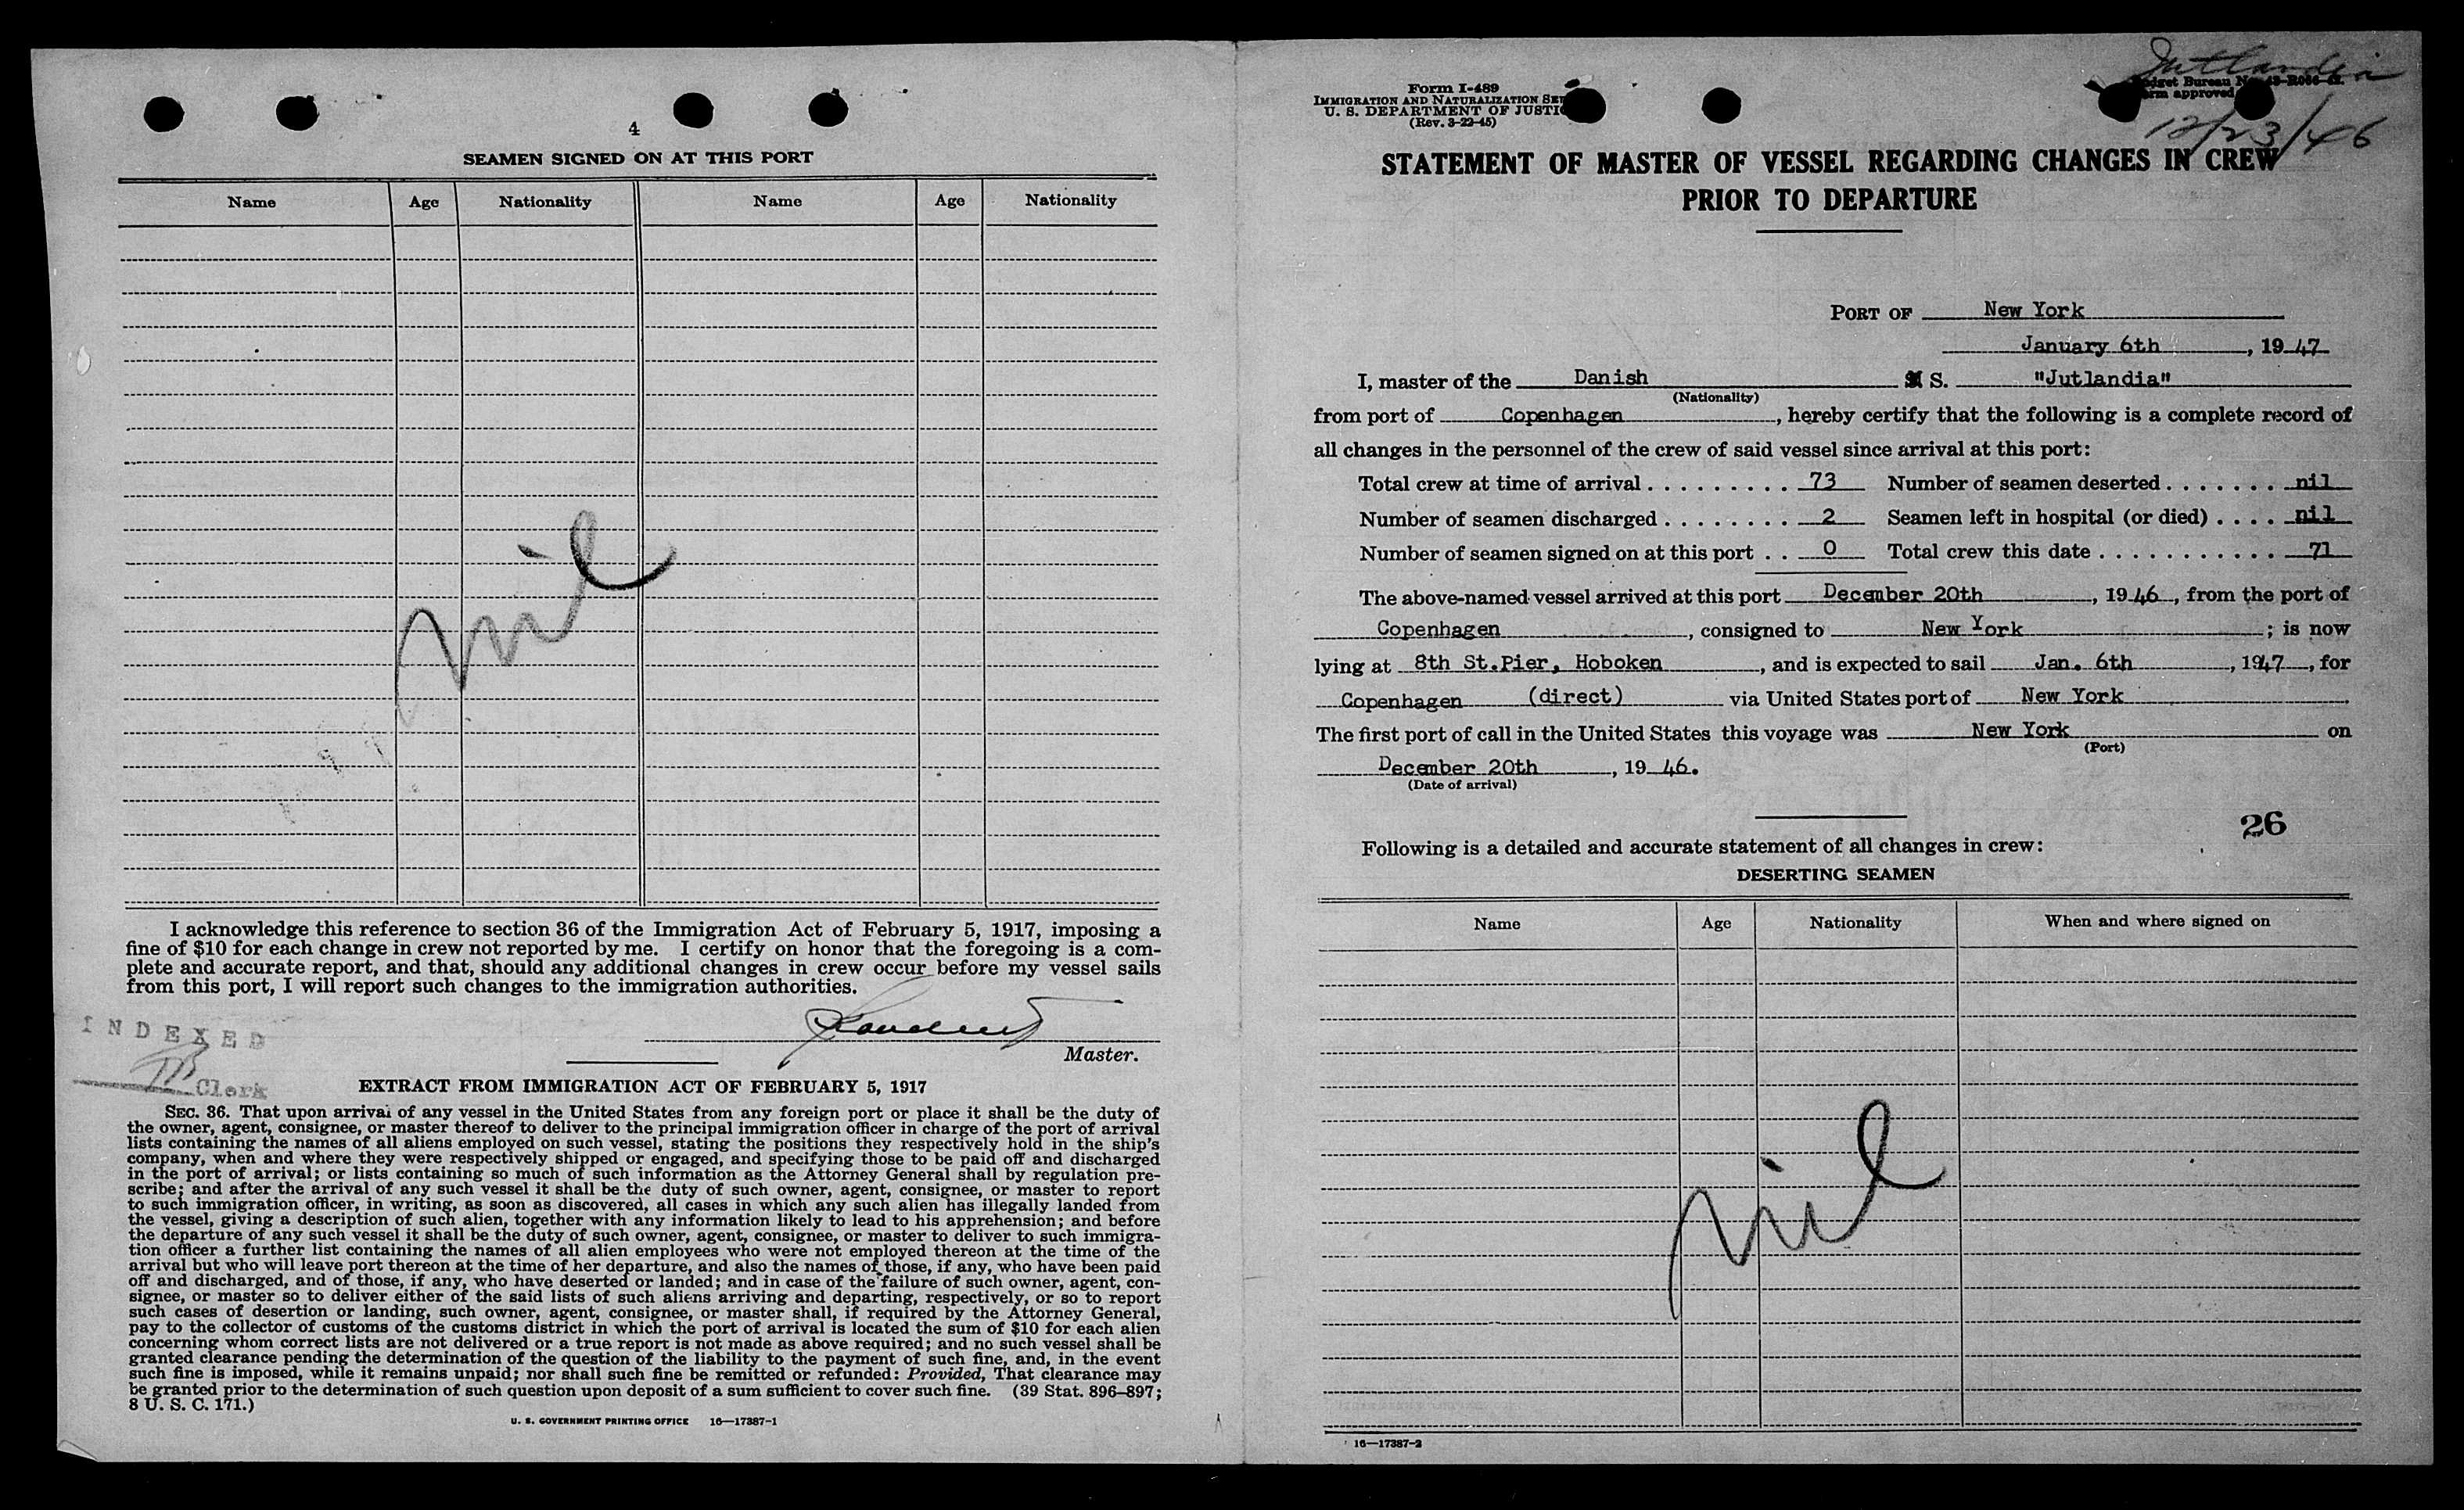 4
SEAMEN SIGNED ON AT THIS PORT
Name Age Nationality Name Age Nationality
nil
I acknowledge this reference to section 36 of the Immigration Act of February 5, 1917, imposing a
fine of $10 for each change in crew not reported by me. I certify on honor that the foregoing is a com-
plete and accurate report, and that, should any additional changes in crew occur before my vessel sails
from this port, I will report such changes to the immigration authorities.
INDEXED
Master.
Clerk
EXTRACT FROM IMMIGRATION ACT OF FEBRUARY 5, 1917
SEC. 36. That upon arrival of any vessel in the United States from any foreign port or place it shall be the duty of
the owner, agent, consignee, or master thereof to deliver to the principal immigration officer in charge of the port of arrival
lists containing the names of all aliens employed on such vessel, stating the positions they respectively hold in the ship's
company, when and where they were respectively shipped or engaged, and specifying those to be paid off and discharged
in the port of arrival; or lists containing so much of such information as the Attorney General shall by regulation pre-
scribe; and after the arrival of any such vessel it shall be the duty of such owner, agent, consignee, or master to report
to such immigration officer, in writing, as soon as discovered, all cases in which any such alien has illegally landed from
the vessel, giving a description of such alien, together with any information likely to lead to his apprehension; and before
the departure of any such vessel it shall be the duty of such owner, agent, consignee, or master to deliver to such immigra-
tion officer a further list containing the names of all alien employees who were not employed thereon at the time of the
arrival but who will leave port thereon at the time of her departure, and also the names of those, if any, who have been paid
off and discharged, and of those, if any, who have deserted or landed; and in case of the failure of such owner, agent, con-
signee, or master so to deliver either of the said lists of such aliens arriving and departing, respectively, or so to report
such cases of desertion or landing, such owner, agent, consignee, or master shall, if required by the Attorney General,
pay to the collector of customs of the customs district in which the port of arrival is located the sum of $10 for each alien
concerning whom correct lists are not delivered or a true report is not made as above required; and no such vessel shall be
granted clearance pending the determination of the question of the liability to the payment of such fine, and, in the event
such fine is imposed, while it remains unpaid; nor shall such fine be remitted or refunded: Provided, That clearance may
be granted prior to the determination of such question upon deposit of a sum sufficient to cover such fine. (39 Stat. 896–897;
8 U. S. C. 171.)
U. S. GOVERNMENT PRINTING OFFICE 16—17387-1
Jutlandia
12/23/46
Form I-489
IMMIGRATION AND NATURALIZATION
U. S. DEPARTMENT OF
(Rev. 3-22-45)
Bureau
approved
STATEMENT OF MASTER OF VESSEL REGARDING CHANGES IN CREW
PRIOR TO DEPARTURE
PORT OF New York
January 6th, 1947
I, master of the Danish S. "Jutlandia"
(Nationality)
from port of Copenhagen, hereby certify that the following is a complete record of
all changes in the personnel of the crew of said vessel since arrival at this port:
Total crew at time of arrival . . . . . . . . . 73 Number of seamen deserted . . . . . . . nil
Number of seamen discharged . . . . . . . . 2 Seamen left in hospital (or died) . . . . nil
Number of seamen signed on at this port . . 0 Total crew this date . . . . . . . . . . . 71
The above-named vessel arrived at this port December 20th, 1946, from the port of
Copenhagen, consigned to New York; is now
lying at 8th St.Pier, Hoboken, and is expected to sail Jan. 6th, 1947, for
Copenhagen (direct) via United States port of New York.
The first port of call in the United States this voyage was New York on
(Port)
December 20th, 19 46.
(Date of arrival)
26
Following is a detailed and accurate statement of all changes in crew:
DESERTING SEAMEN
Name Age Nationality When and where signed on
nil
16—17387-2